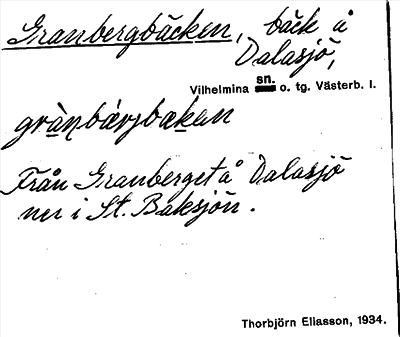 Granbergbäcken, bäck å
Dalasjö,
Vilhelmina sn. o. tg. Västerb. l.
Från Granberget å Dalasjö
ner i St. Baksjön.
Thorbjörn Eliasson, 1934.